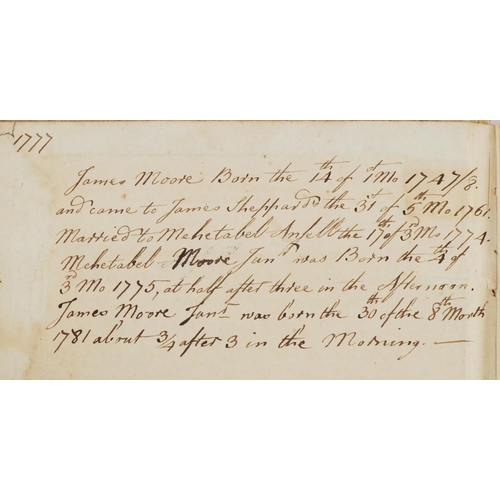 1777
James Moore Born the 14th of 1st Mo 1747/8.
and came to James Sheppards the 31st of 5th Mo 1761.
Married to Mehetabel Ansell the 17th of 3d Mo 1774.
Mehetabel Moore Junr was Born the 4th of
3d Mo 1775, at half after three in the Afternoon.
James Moore Junr was born the 30th of the 8th Month
1781 about 3/4 after 3 in the Morning. —